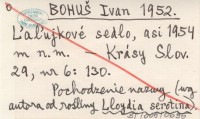 BOHUŠ Ivan 1952.
Ľaliujkové sedlo, asi 1954
m n.m. – Krásy Slov.
29, №6: 130.
Pochodzenie nazwy (wg
autora od rośliny Lloydia serotina).